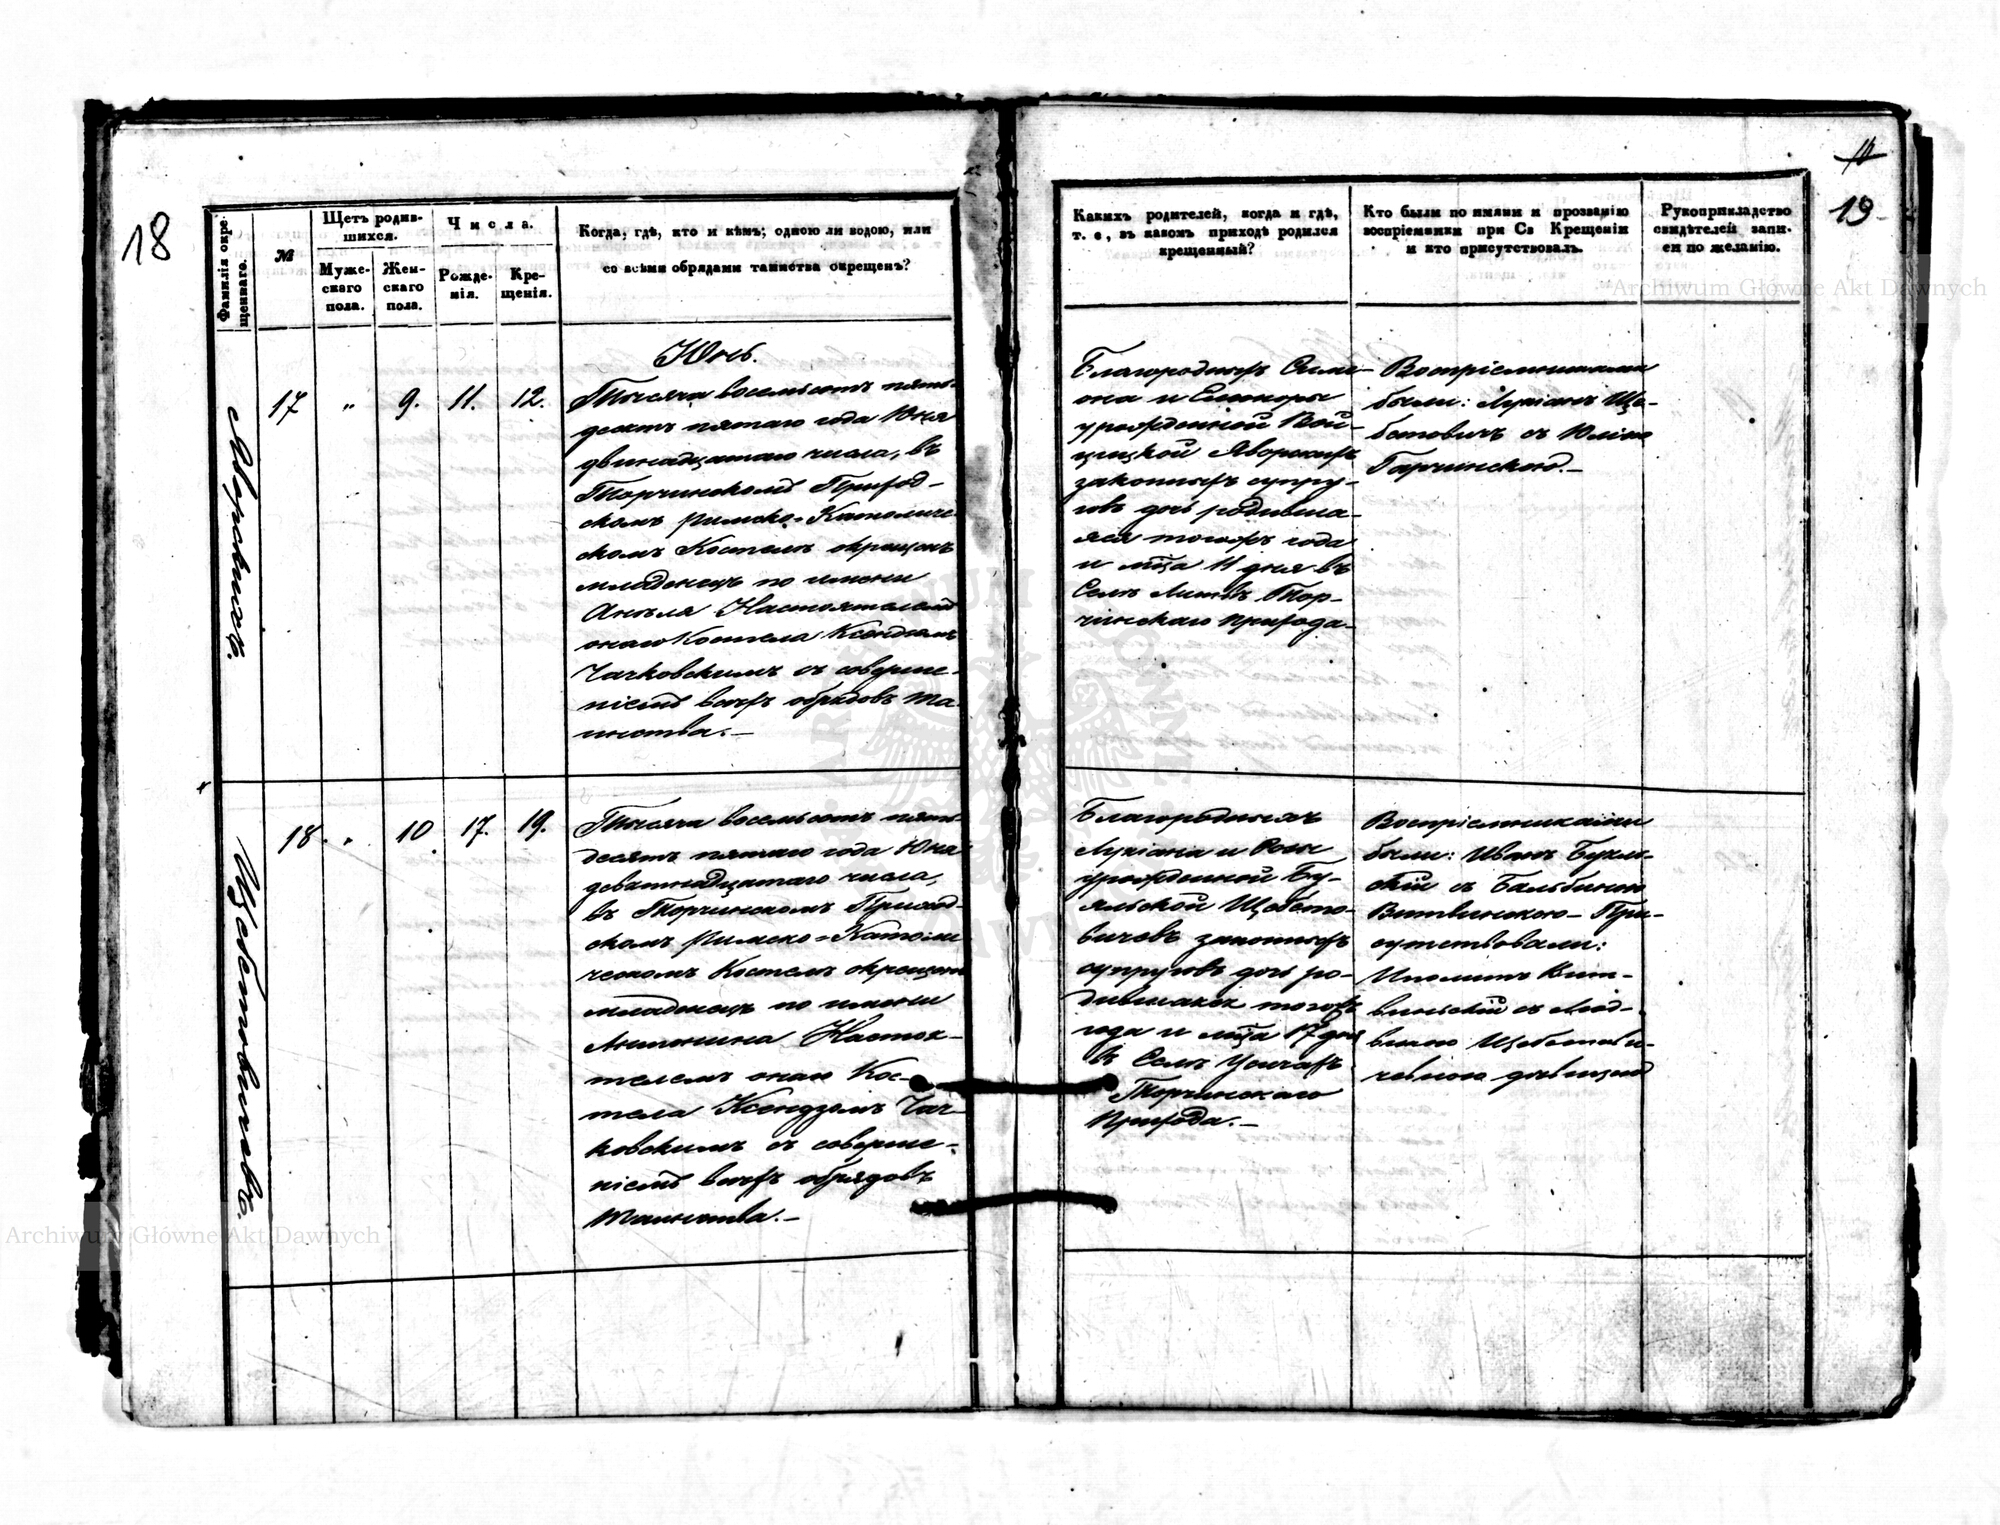 18
Фамилія окре-
щеннаго.
№
Щетъ родив-
шихся.
Муже-
скаго
пола.
Жен-
скаго
пола.
Числа.
Рожде-
нія.
Кре-
щенія.
Когда, гдѣ, кто и кѣмъ; одною ли водою, или
со всѣми обрядами таинства окрещенъ?
17
"
9.
11.
12.
Тысяча восемьсотъ пять-
десятъ пятаго года Юня
двинадцатаго числа, въ
Торчинскомъ Приход-
скомъ Римско-Католиче-
скомъ Костелѣ окрещенъ
младенецъ по имени
Анѣля Настоятелемъ
онаго Костела Ксендзомъ
Чачковскимъ съ соверше-
ніемъ всѣхъ обрядовъ Та-
инства.-
18.
"
10.
17.
19.
Тысяча восемьсотъ пять-
десятъ пятаго года Юня
девятнадцатаго числа,
въ Торчинскомъ Приход-
скомъ Римско-Католи-
ческомъ Костелѣ окрещенъ
младенецъ по имени
Антонина Настоя-
телемъ онаго Кос-
тела Ксендзомъ Чач-
ковскимъ съ соверше-
ніемъ всѣхъ обрядовъ
Таинства.-
Щебетовичевъ.
19
Какихъ родителей, когда и гдѣ,
т. е, въ какомъ приходѣ родился
крещенный?
Кто были по имяни и прозванію
воспріемники при Св Крещеніи
и кто присутствовалъ.
Рукоприкладство
свидѣтелей запи-
си по желанію.
Благородныхъ Симе-
она и Елеоноры
урожденной Вой-
цицкой Яворскихъ
законныхъ супру-
говъ дочь родивша-
яся тогожъ года
и мѣца 11 дня въ
Селѣ Литвѣ Тор-
чинскаго Прихода-
Воспріемниками
были: Лукіанъ Ще-
бетовичъ съ Юліею
Гарчинскою.-
Благородныхъ
Лукіана и Розы
урожденной Бу-
яльской Щебето-
вичевъ законныхъ
супруговъ дочь ро-
дившаяся тогожъ
года и мѣца 17 дня
въ Селѣ
Торчинскаго
Прихода.-
Воспріемниками
были: Иванъ
съ Бальбиною
Витвинскою- При-
сутствовали:
Иполитъ Вит-
винскій съ Люд-
викою Щебетови-
чевною дѣвицею
Archiwum Główne Akt Dawnych
Archiwum Główne Akt Dawnych